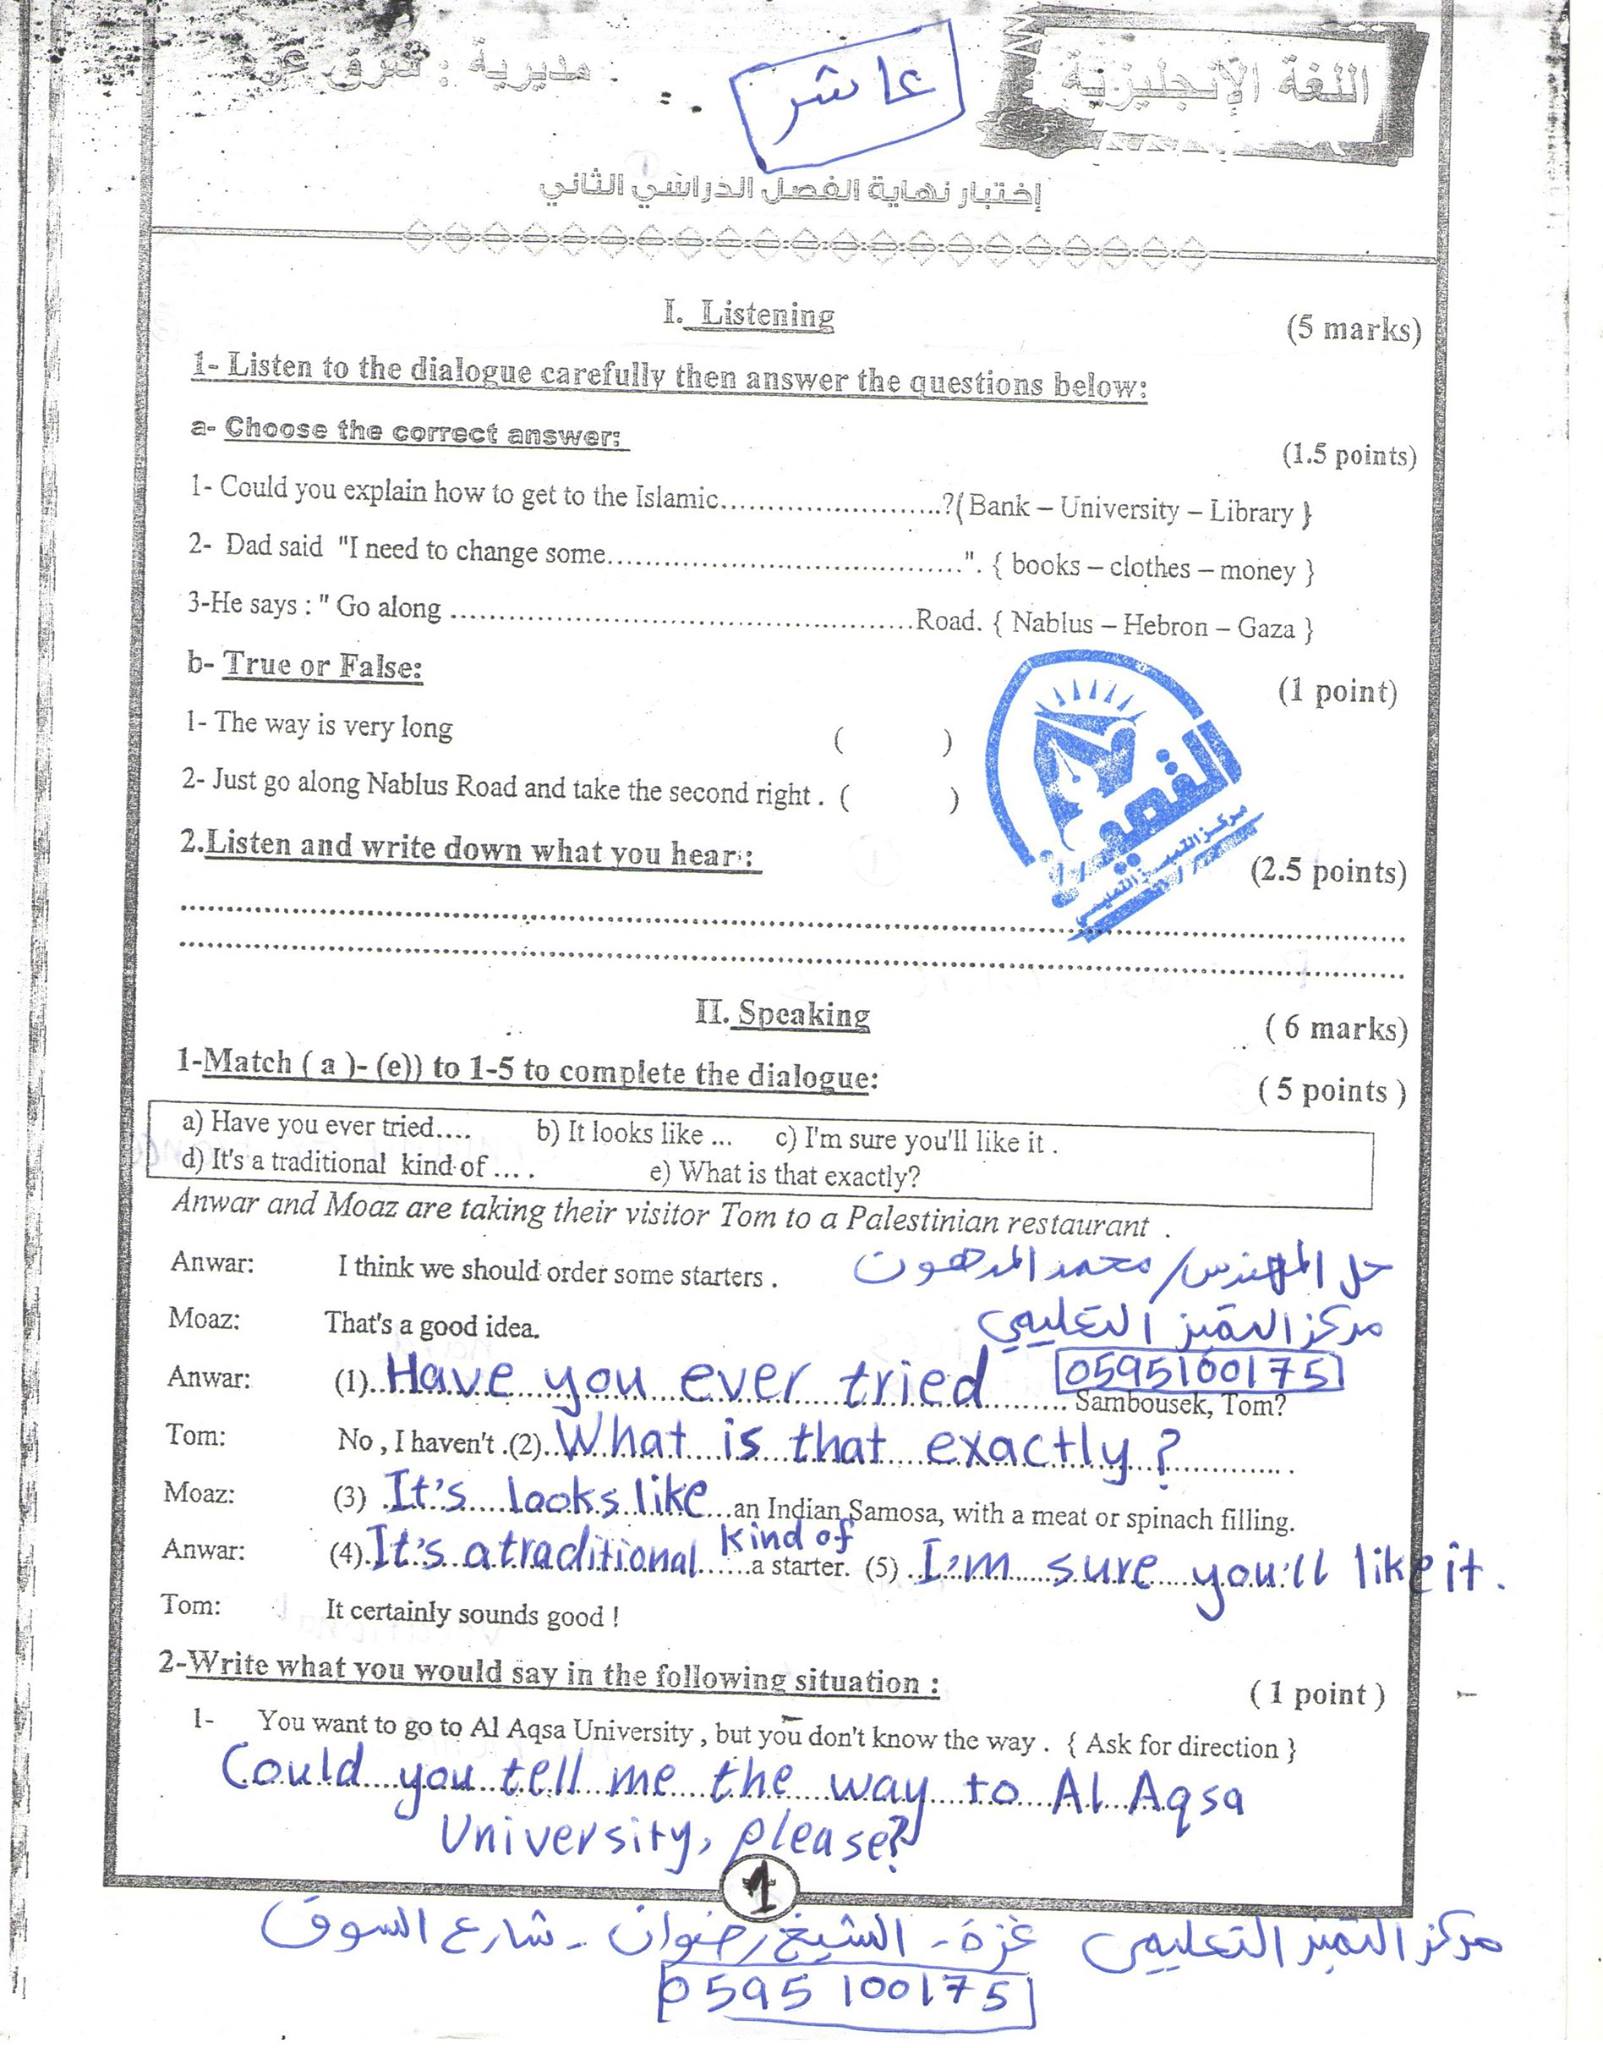 اللغة الإنجليزية
عاشر
مديرية : شرق غزة
إختبار نهاية الفصل الدراسي الثاني
I. Listening (5 marks)
1- Listen to the dialogue carefully then answer the questions below:
a- Choose the correct answer: (1.5 points)
1- Could you explain how to get to the Islamic........................?{ Bank – University – Library }
2- Dad said "I need to change some....................................". { books – clothes – money }
3-He says : " Go along ...............................................Road. { Nablus – Hebron – Gaza }
b- True or False: (1 point)
1- The way is very long ( )
2- Just go along Nablus Road and take the second right . ( )
التميز
مركز التميز التعليمي
2.Listen and write down what you hear: (2.5 points)
II. Speaking ( 6 marks)
1-Match ( a )- (e)) to 1-5 to complete the dialogue: ( 5 points )
a) Have you ever tried.... b) It looks like ... c) I'm sure you'll like it .
d) It's a traditional kind of .... . e) What is that exactly?
Anwar and Moaz are taking their visitor Tom to a Palestinian restaurant .
Anwar: I think we should order some starters . حل المهندس/ محمد المدهون
Moaz: That's a good idea. مركز التميز التعليمي
0595100175
Anwar: (1) Have you ever tried Sambousek, Tom?
Tom: No , I haven't .(2) What is that exactly?
Moaz: (3) It's looks like an Indian Samosa, with a meat or spinach filling.
Anwar: (4) It's a traditional kind of a starter. (5) I'm sure you'll like it.
Tom: It certainly sounds good !
2-Write what you would say in the following situation : ( 1 point )
1- You want to go to Al Aqsa University , but you don't know the way . { Ask for direction }
Could you tell me the way to Al Aqsa
University, please?
1
مركز التميز التعليمي غزة - الشيخ رضوان - شارع السوق
0595100175